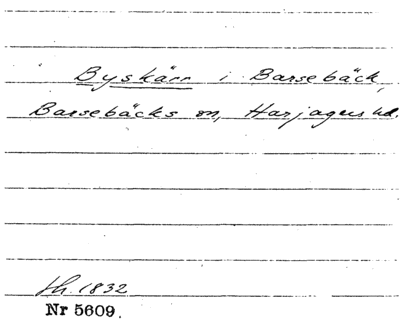 Byskärr i Barsebäck,
Barsebäcks sn, Harjagers hd.
1832
Nr 5609.